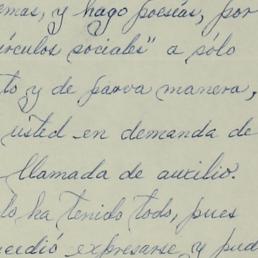 emas, y hago poesías, por
írculos sociales" a sólo
to y de parva manera,
usted en demanda de
llamada de auxilio.
lo ha tenido todo, pues
cedió expresarse, y pud